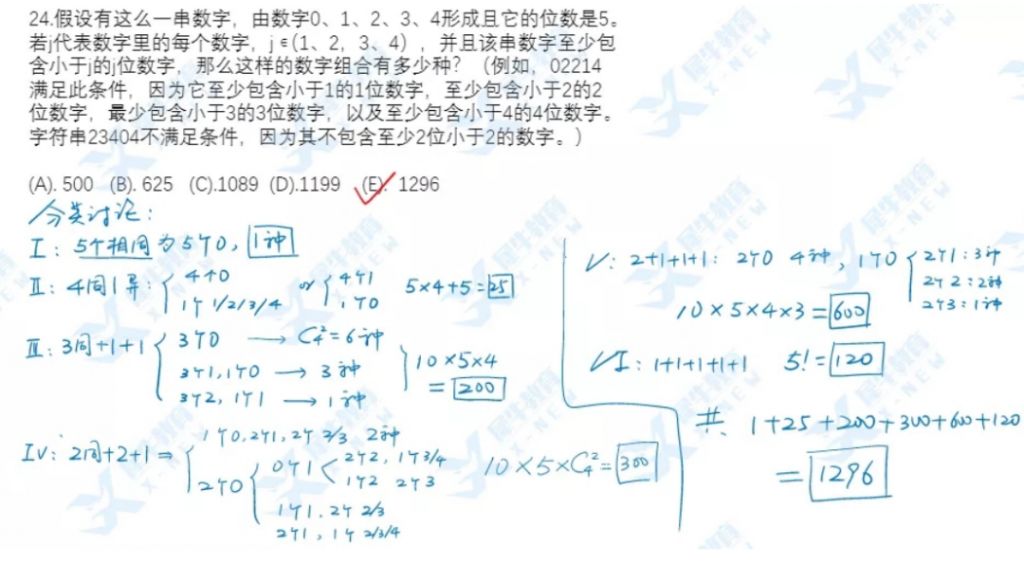 24.假设有这么一串数字，由数字0、1、2、3、4形成且它的位数是5。
若j代表数字里的每个数字，j ∈(1、2，3、4），并且该串数字至少包
含小于j的j位数字，那么这样的数字组合有多少种？（例如，02214
满足此条件，因为它至少包含小于1的1位数字，至少包含小于2的2
位数字，最少包含小于3的3位数字，以及至少包含小于4的4位数字。
字符串23404不满足条件，因为其不包含至少2位小于2的数字。）
(A). 500 (B). 625 (C).1089 (D).1199 (E). 1296
分类讨论：
I：5个相同为5个0，1种
II：4同1异：4个0 or 4个1 5×4+5=25
1个1/2/3/4 1个0
III：3同+1+1 3个0 → C₄²=6种
3个1,1个0 → 3种 10×5×4
3个2,1个1 → 1种 =200
IV：2同+2+1 ⇒ 1个0,2个1,2个2/3 2种
2个0 0个1 2个2,1个3/4
1个2 2个3
1个1.2个2/3
2个1,1个2/3/4
10×5×C₄²=300
V：2+1+1+1：2个0 4种，1个0 2个1：3种
2个2：2种
2个3：1种
10×5×4×3=600
VI：1+1+1+1+1 5!=120
共 1+25+200+300+600+120
=1296
犀牛教育
X-NEW